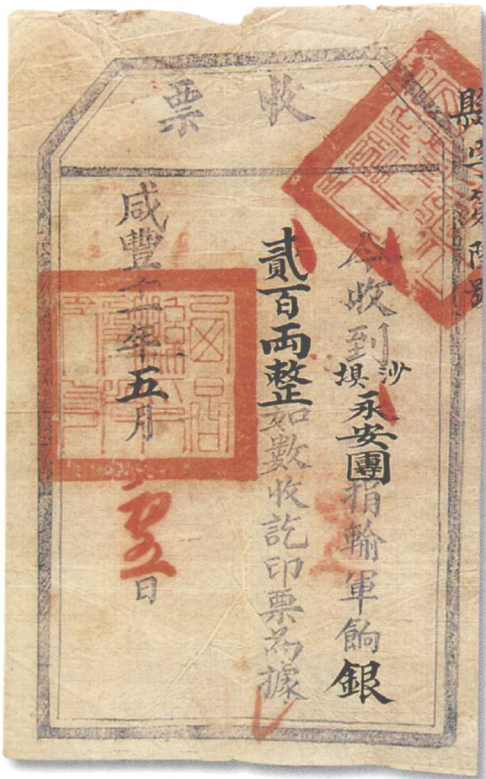 收票
今收到沙埧永安團捐輸軍餉銀
貳百両整如數收訖印票為據
咸豐十一年五月日